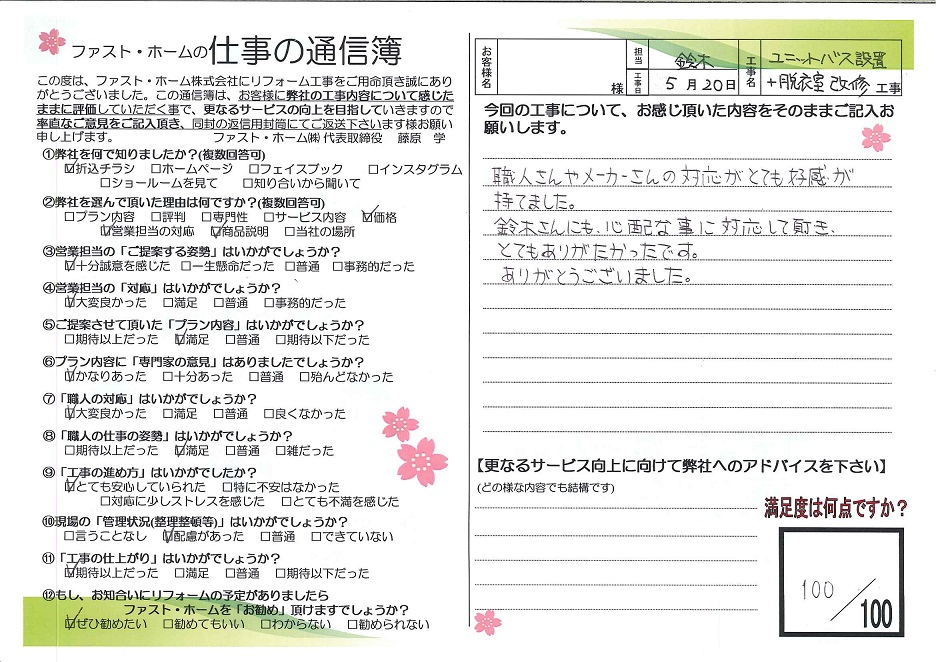 ファスト・ホームの仕事の通信簿
この度は、ファスト・ホーム株式会社にリフォーム工事をご用命頂き誠にあり
がとうございました。この通信簿は、お客様に弊社の工事内容について感じた
ままに評価していただく事で、更なるサービスの向上を目指していきますので
率直なご意見をご記入頂き、同封の返信用封筒にてご返送下さいます様お願い
申し上げます。 ファスト・ホーム㈱ 代表取締役 藤原 学
①弊社を何で知りましたか?(複数回答可)
☑折込チラシ □ホームページ □フェイスブック □インスタグラム
□ショールームを見て □知り合いから聞いて
②弊社を選んで頂いた理由は何ですか?(複数回答可)
□プラン内容 □評判 □専門性 □サービス内容 ☑価格
☑営業担当の対応 ☑商品説明 □当社の場所
③営業担当の「ご提案する姿勢」はいかがでしょうか?
☑十分誠意を感じた □一生懸命だった □普通 □事務的だった
④営業担当の「対応」はいかがでしょうか?
☑大変良かった □満足 □普通 □事務的だった
⑤ご提案させて頂いた「プラン内容」はいかがでしょうか?
□期待以上だった ☑満足 □普通 □期待以下だった
⑥プラン内容に「専門家の意見」はありましたでしょうか?
☑かなりあった □十分あった □普通 □殆んどなかった
⑦「職人の対応」はいかがでしょうか?
☑大変良かった □満足 □普通 □良くなかった
⑧「職人の仕事の姿勢」はいかがでしょうか?
□期待以上だった ☑満足 □普通 □雑だった
⑨「工事の進め方」はいかがでしたか?
☑とても安心していられた □特に不安はなかった
□対応に少しストレスを感じた □とても不満を感じた
⑩現場の「管理状況(整理整頓等)」はいかがでしょうか?
□言うことなし ☑配慮があった □普通 □できていない
⑪「工事の仕上がり」はいかがでしょうか?
☑期待以上だった □満足 □普通 □期待以下だった
⑫もし、お知合いにリフォームの予定がありましたら
ファスト・ホームを「お勧め」頂けますでしょうか?
☑ぜひ勧めたい □勧めてもいい □わからない □勧められない
お客様名 様 担当 鈴木 工事日 5月20日 工事名 ユニットバス設置
+脱衣室改修 工事
今回の工事について、お感じ頂いた内容をそのままご記入お
願いします。
職人さんやメーカーさんの対応がとても好感が
持てました。
鈴木さんにも、心配な事に対応して頂き、
とてもありがたかったです。
ありがとうございました。
【更なるサービス向上に向けて弊社へのアドバイスを下さい】
(どの様な内容でも結構です)
満足度は何点ですか?
100/100